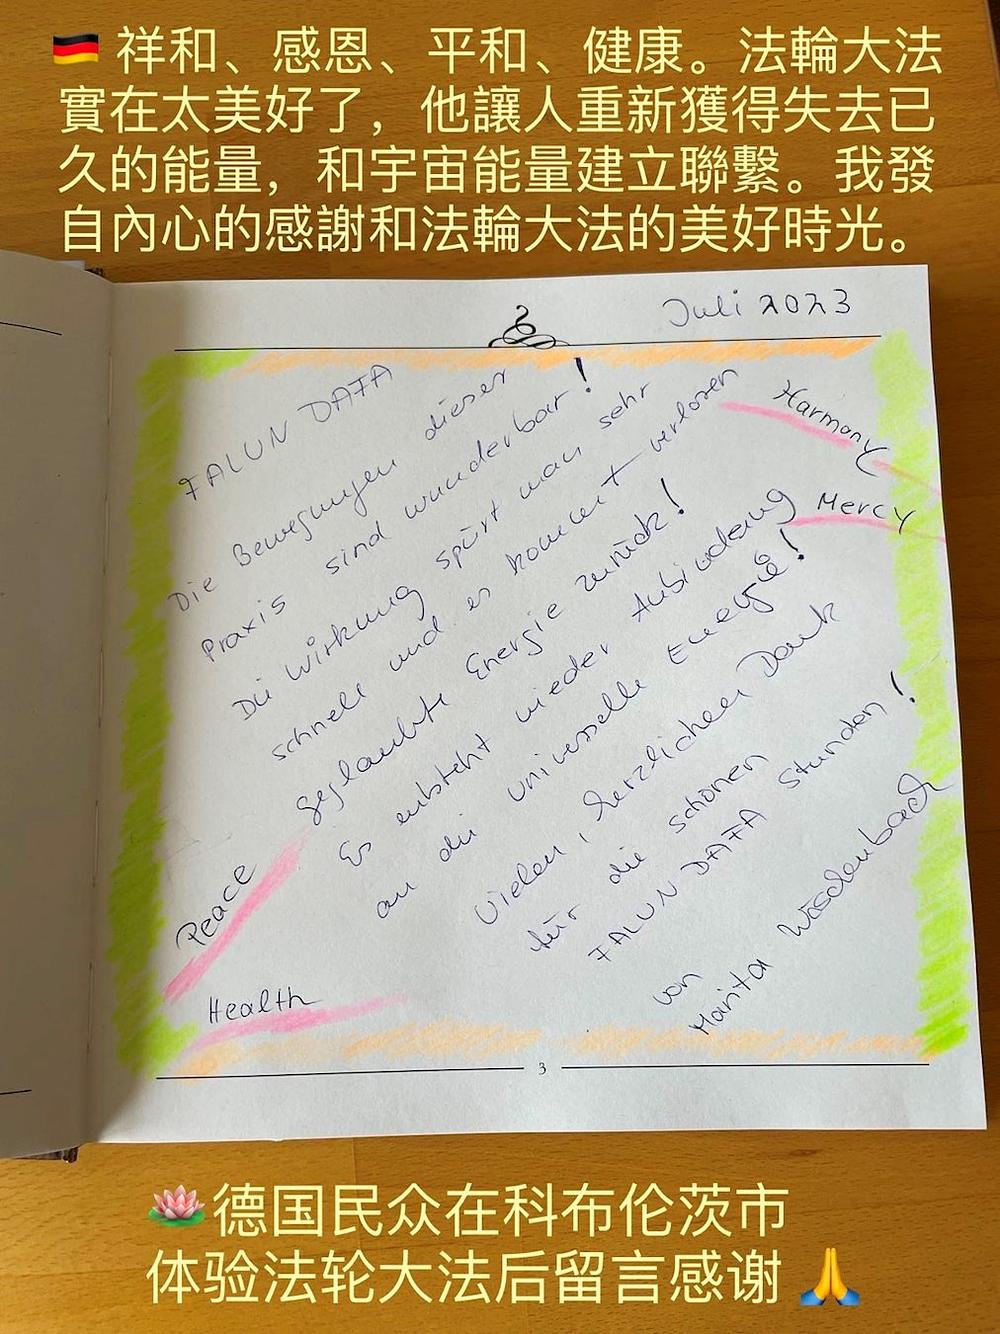 🇩🇪 祥和、感恩、平和、健康。法輪大法
實在太美好了，他讓人重新獲得失去已
久的能量，和宇宙能量建立聯繫。我發
自內心的感謝和法輪大法的美好時光。
Juli 2023
FALUN DAFA
Die Bewegungen dieser
Praxis sind wunderbar!
Die Wirkung spürt man sehr
schnell und es kommt verloren
geglaubte Energie zurück!
Es entsteht wieder Anbindung
an die universelle Energie!
Vielen, herzlichen Dank
für die schönen
FALUN DAFA Stunden!
von
Marita Wäschenbach
Harmony
Mercy
Peace
Health
3
🪷德国民众在科布伦茨市
体验法轮大法后留言感谢🙏